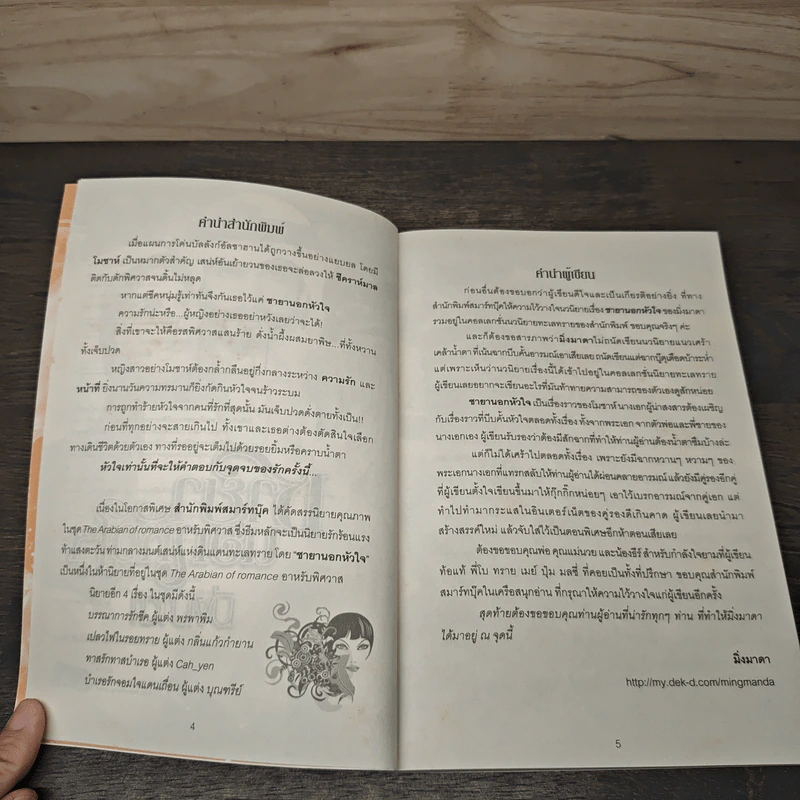 คำนำสำนักพิมพ์
เมื่อแผนการโค่นบัลลังก์อัลซาฮานได้ถูกวางขึ้นอย่างแยบยล โดยมี
โมซาห์ เป็นหมากตัวสำคัญ เสน่ห์อันเย้ายวนของเธอจะล่อลวงให้ ชีคราห์มาล
ติดกับดักพิศวาสจนดิ้นไม่หลุด
หากแต่ชีคหนุ่มรู้เท่าทันจึงกันเธอไว้แค่ ชายานอกหัวใจ
ความรักน่ะหรือ...ผู้หญิงอย่างเธออย่าหวังเลยว่าจะได้!
สิ่งที่เขาจะให้คือรสพิศวาสแสนร้าย ดั่งน้ำผึ้งผสมยาพิษ...ที่ทั้งหวาน
ทั้งเจ็บปวด
หญิงสาวอย่างโมซาห์ต้องกล้ำกลืนอยู่กึ่งกลางระหว่าง ความรัก และ
หน้าที่ ยิ่งนานวันความทรมานก็ยิ่งกัดกินหัวใจจนร้าวระบม
การถูกทำร้ายหัวใจจากคนที่รักที่สุดนั้น มันเจ็บปวดดั่งตายทั้งเป็น!!
ก่อนที่ทุกอย่างจะสายเกินไป ทั้งเขาและเธอต่างต้องตัดสินใจเลือก
ทางเดินชีวิตด้วยตัวเอง ทางที่รออยู่จะเต็มไปด้วยรอยยิ้มหรือคราบน้ำตา
หัวใจเท่านั้นที่จะให้คำตอบกับจุดจบของรักครั้งนี้...
เนื่องในโอกาสพิเศษ สำนักพิมพ์สมาร์ทบุ๊ค ได้คัดสรรนิยายคุณภาพ
ในชุด The Arabian of romance อาหรับพิศวาส ซึ่งธีมหลักจะเป็นนิยายรักร้อนแรง
ท้าแสงตะวัน ท่ามกลางมนต์เสน่ห์แห่งดินแดนทะเลทราย โดย "ชายานอกหัวใจ"
เป็นหนึ่งในห้านิยายที่อยู่ในชุด The Arabian of romance อาหรับพิศวาส
นิยายอีก 4 เรื่อง ในชุดมีดังนี้
บรรณาการรักชีค ผู้แต่ง พรพาพิม
เปลวไฟในรอยทราย ผู้แต่ง กลิ่นแก้วกำยาน
ทาสรักทาสบำเรอ ผู้แต่ง Cah_yen
บำเรอรักจอมใจแดนเถื่อน ผู้แต่ง บุณฑรีย์
4
คำนำผู้เขียน
ก่อนอื่นต้องขอบอกว่าผู้เขียนดีใจและเป็นเกียรติอย่างยิ่ง ที่ทาง
สำนักพิมพ์สมาร์ทบุ๊คให้ความไว้วางใจนวนิยายเรื่อง ชายานอกหัวใจ ของมิ่งมาดา
รวมอยู่ในคอลเลกชั่นนวนิยายทะเลทรายของสำนักพิมพ์ ขอบคุณจริงๆ ค่ะ
และก็ต้องขอสารภาพว่ามิ่งมาดาไม่ถนัดเขียนนวนิยายแนวเศร้า
เคล้าน้ำตา ที่เน้นฉากบีบคั้นอารมณ์เอาเสียเลย ถนัดเขียนแต่ฉากบู๊ดุเดือดบ้าระห่ำ
แต่เพราะเห็นว่านวนิยายเรื่องนี้ได้เข้าไปอยู่ในคอลเลกชั่นนิยายทะเลทราย
ผู้เขียนเลยอยากจะเขียนอะไรที่มันท้าทายความสามารถของตัวเองดูสักหน่อย
ชายานอกหัวใจ เป็นเรื่องราวของโมซาห์ นางเอกผู้น่าสงสารต้องเผชิญ
กับเรื่องราวที่บีบคั้นหัวใจตลอดทั้งเรื่อง ทั้งจากพระเอก จากตัวพ่อและพี่ชายของ
นางเอกเอง ผู้เขียนรับรองว่าต้องมีสักฉากที่ทำให้ท่านผู้อ่านต้องน้ำตาซึมบ้างล่ะ
แต่ก็ไม่ได้เศร้าไปตลอดทั้งเรื่อง เพราะยังมีฉากหวานๆ หวามๆ ของ
พระเอกนางเอกที่แทรกสลับให้ท่านผู้อ่านได้ผ่อนคลายอารมณ์ แล้วยังมีคู่รองอีกคู่
ที่ผู้เขียนตั้งใจเขียนขึ้นมาให้กุ๊กกิ๊กหน่อยๆ เอาไว้เบรกอารมณ์จากคู่เอก แต่
ทำไปทำมากระแสในอินเตอร์เน็ตของคู่รองดีเกินคาด ผู้เขียนเลยนำมา
สร้างสรรค์ใหม่ แล้วจับใส่ไว้เป็นตอนพิเศษอีกห้าตอนเสียเลย
ต้องขอขอบคุณพ่อ คุณแม่นวย และน้องธีร์ สำหรับกำลังใจยามที่ผู้เขียน
ท้อแท้ พี่โบ ทราย เมย์ ปุ้ม มลซี่ ที่คอยเป็นทั้งที่ปรึกษา ขอบคุณสำนักพิมพ์
สมาร์ทบุ๊คในเครือสนุกอ่าน ที่กรุณาให้ความไว้วางใจแก่ผู้เขียนอีกครั้ง
สุดท้ายต้องขอขอบคุณท่านผู้อ่านที่น่ารักทุกๆ ท่าน ที่ทำให้มิ่งมาดา
ได้มาอยู่ ณ จุดนี้
มิ่งมาดา
http://my.dek-d.com/mingmanda
5